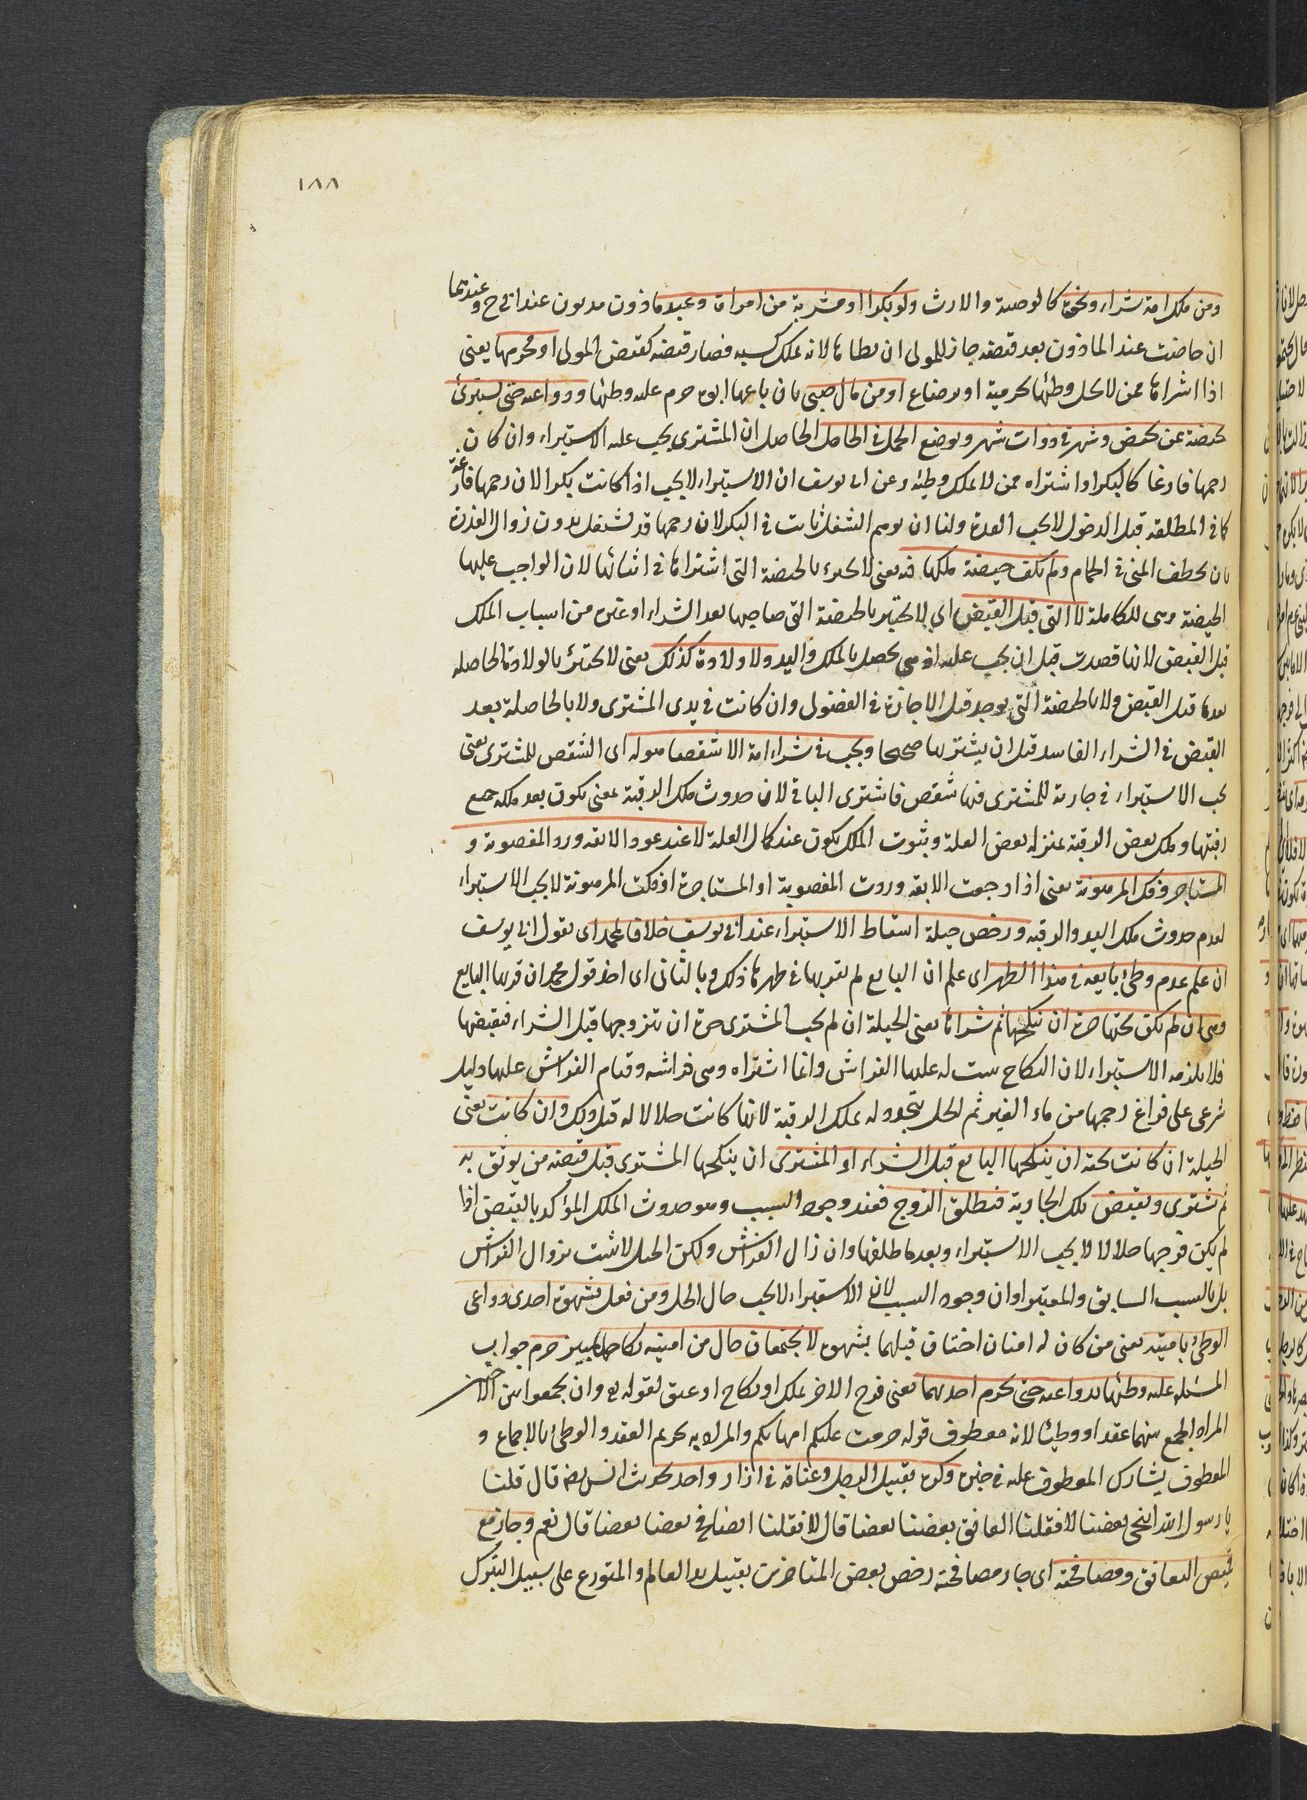 ١٨٨
ومن ملك امة بشراء ونحوه كالوصية والارث ولو بكرا او مشرية من امراة وعبد ماذون مديون عند ابي ح وعندهما
ان حاضت عند الماذون بعد قبضه جاز للمولى ان يطاها لانه يملك كسبه فصار قبضه كقبض المولى او محرمها يعنى
اذا اشتراها ممن لا يحل وطئها كرمية او رضاع او من مال صبي بان باعها ابوه حرم عليه وطئها ودواعيه حتى يستبرئ
بحيضة ممن تحيض وشهر في ذوات شهر وبوضع الحمل في الحامل الحاصل ان المشترى يجب عليه الاستبراء وان كان
رحمها فارغا كالبكر او اشتراه ممن لا يملك وطئه وعن ابى يوسف ان الاستبراء لا يجب اذا كانت بكرا لان رحمها فارغة
كما في المطلقة قبل الدخول لا يجب العدة ولنا ان توهم الشغل ثابت في البكر لان رحمها قد تشغل بدون زوال العذرة
بان يخطف المنى في الحمام ولم تكف حيضة ملكها فيه يعنى لا يجتزء بالحيضة التى اشتراها في اثنائها لان الواجب عليها
الحيضة وهى للكاملة لا التى قبل القبض اي لا يجتزء بالحيضة التى حاضتها بعد الشراء او غيره من اسباب الملك
قبل القبض لانها قصدت قبل ان يجب عليه اذ هى يحصل بالملك واليد ولا ولادة كذلك يعنى لا يجتزئ بالولادة الحاصلة
بعدها قبل القبض ولا بالحيضة التى توجد قبل الاجازة في الفضولي وان كانت في يدى المشترى ولا بالحاصلة بعد
القبض في الشراء الفاسد قبل ان يشتريها صحيحا ويجب في شراء امة الا شقصا هو له اى الشقص للمشترى يعنى
يجب الاستبراء في جارية للمشترى فيها شقص فاشترى الباقى لان حدوث ملك الرقبة بمعنى يكون بعد ملكه جميع
رقبتها وملك بعض الرقبة بمنزلة بعض العلة وثبوت الملك يكون عند كمال العلة لا عند عود الابقة ورد المغصوبة و
المستاجرة وفك المرهونة يعنى اذا رجعت الابقة وردت المغصوبة او المستاجرة او فكت المرهونة لا يجب الاستبراء
لعدم حدوث ملك اليد والرقبة ورخص حيلة اسقاط الاستبراء عند ابى يوسف خلافا لمحمد اى بقول ابى يوسف
ان علم عدم وطئ بايعه في هذا الطهر اى علم ان البايع لم يقربها في طهرها ذلك وبالثانى اى اخذ قول محمد ان قربها البايع
وهى ان لم تكن تحتها حرة ان ينكحها ثم شراها يعنى الحيلة ان لم تحت المشترى حرة ان يتزوجها قبل الشراء فيقبضها
فلا يلزمه الاستبراء لان النكاح يثبت له عليها الفراش وانما اشتراه وهى فراشه وقيام الفراش عليها دليل
شرعى على فراغ رحمها من ماء الغير ثم الحل يتجدد له بملك الرقبة لانها كانت حلالا له قبل ذلك وان كانت يعنى
الحيلة ان كانت تحته ان ينكحها البايع قبل الشراء او المشترى ان ينكحها المشترى قبل قبضه من يوثق به
ثم يشترى ويقبض تلك الجارية فيطلق الزوج فعند وجود السبب وهو حدوث الملك المؤكد بالقبض اذا
لم يكن فرجها حلالا لا يجب الاستبراء وبعد ما طلقها وان زال الفراش ولكن الحل لا يثبت بزوال الفراش
بل بالسبب السابق والمعتبر اوان وجود السبب لان الاستبراء لا يجب حال الحل ومن فعل بشهوة احدى دواعى
الوطئ بامتيه يعنى من كان له امتان اختان قبلهما بشهوة لا يجتمعان حال من امتيه نكاحهما تمييز حرم جواب
المسئلة عليه وطئهما بدواعيه حتى يحرم احديهما يعنى فرج الاخر بملك او نكاح او عتق لقوله تع وان تجمعوا بين الاختين
المراد الجمع بينهما عقدا ووطئا لانه معطوف قوله حرمت عليكم امهاتكم والمراد به تحريم العقد والوطئ بالاجماع و
المعطوف يشارك المعطوف عليه في خبره وكره تقبيل الرجل وعناقه في ازار واحد لحديث انس رض قال قلنا
يا رسول الله اينحنى بعضنا لا فقلنا ايعانق بعضنا بعضا قال لا فقلنا ايصافح بعضنا بعضا قال نعم وجاز مع
قميص التعانق ومصافحته اى جاز مصافحته رخص بعض المتاخرين تقبيل يد العالم والمتورع على سبيل التبرك